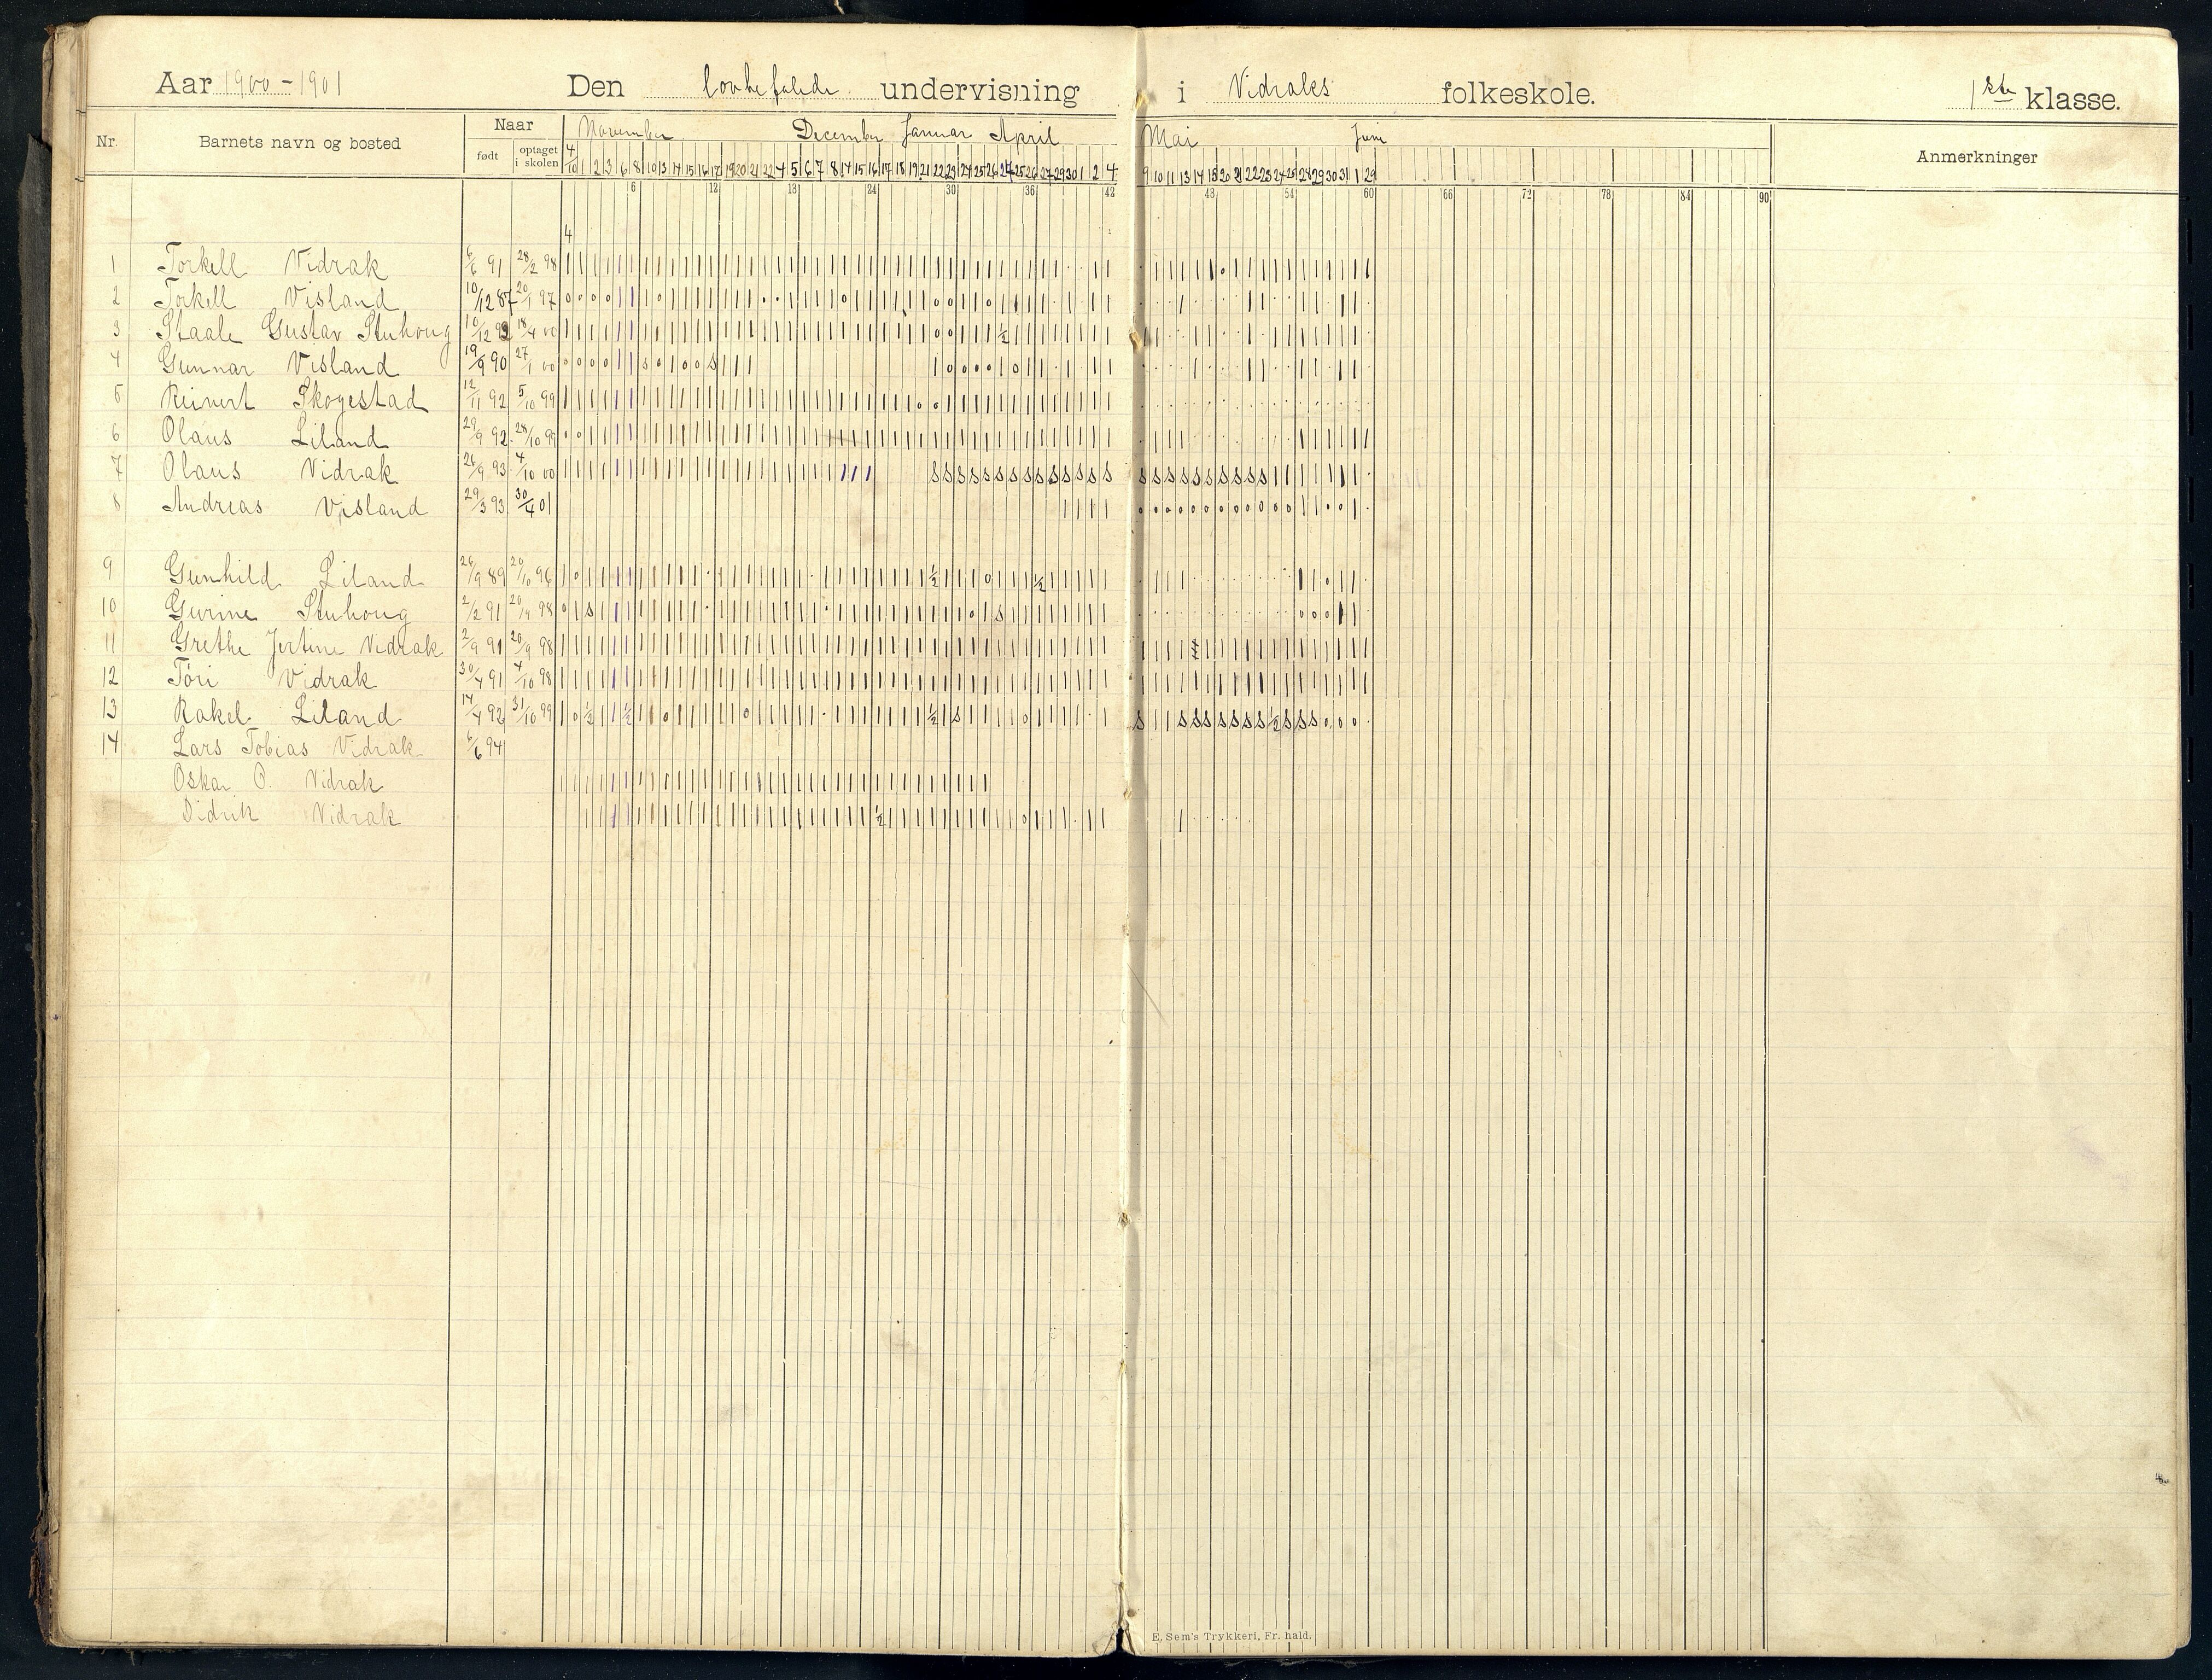 Aar 1900-1901 Den lovbefalede undervisning i Vidraks folkeskole. 1ste klasse.
Nr. Barnets navn og bosted Naar født optaget i skolen November December Januar April Mai Juni Anmerkninger
4/10 1 2 3 6 8 10 13 14 15 16 17 19 20 21 22 4 5 6 7 8 14 15 16 17 18 19 21 22 23 24 25 26 24 25 26 27 29 30 1 2 4 9 10 11 13 14 18 20 21 22 23 24 25 28 29 30 31 1 29
6 12 18 24 30 36 42 48 54 60 66 72 78 84 90
4
1 Torkell Vidrak 6/6 91 28/2 98
2 Torkell Visland 10/12 87 20/1 97
3 Staale Gustav Stuhoug 10/12 92 18/4 00
4 Gunnar Visland 19/9 90 27/1 00
5 Reinert Skogestad 12/11 92 5/10 99
6 Olaus Liland 29/9 92 28/10 99
7 Olaus Vidrak 26/9 93 4/10 00
8 Andreas Visland 29/3 93 30/4 01
9 Gunhild Liland 26/9 89 20/10 96
10 Gurine Stuhoug 2/2 91 98
11 Grethe Jertine Vidrak 2/9 91 20/9 98
12 Töri Vidrak 30/4 91 4/10 98
13 Rakel Liland 14/4 92 31/10 99
14 Lars Tobias Vidrak 6/6 94
Oskar O. Vidrak
Didrik Vidrak
E. Sem's Trykkeri, Fr. hald.